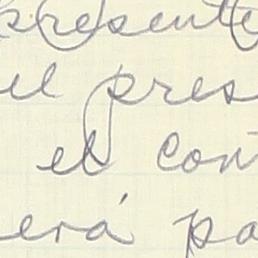 presente
el pres
el con
erá pa